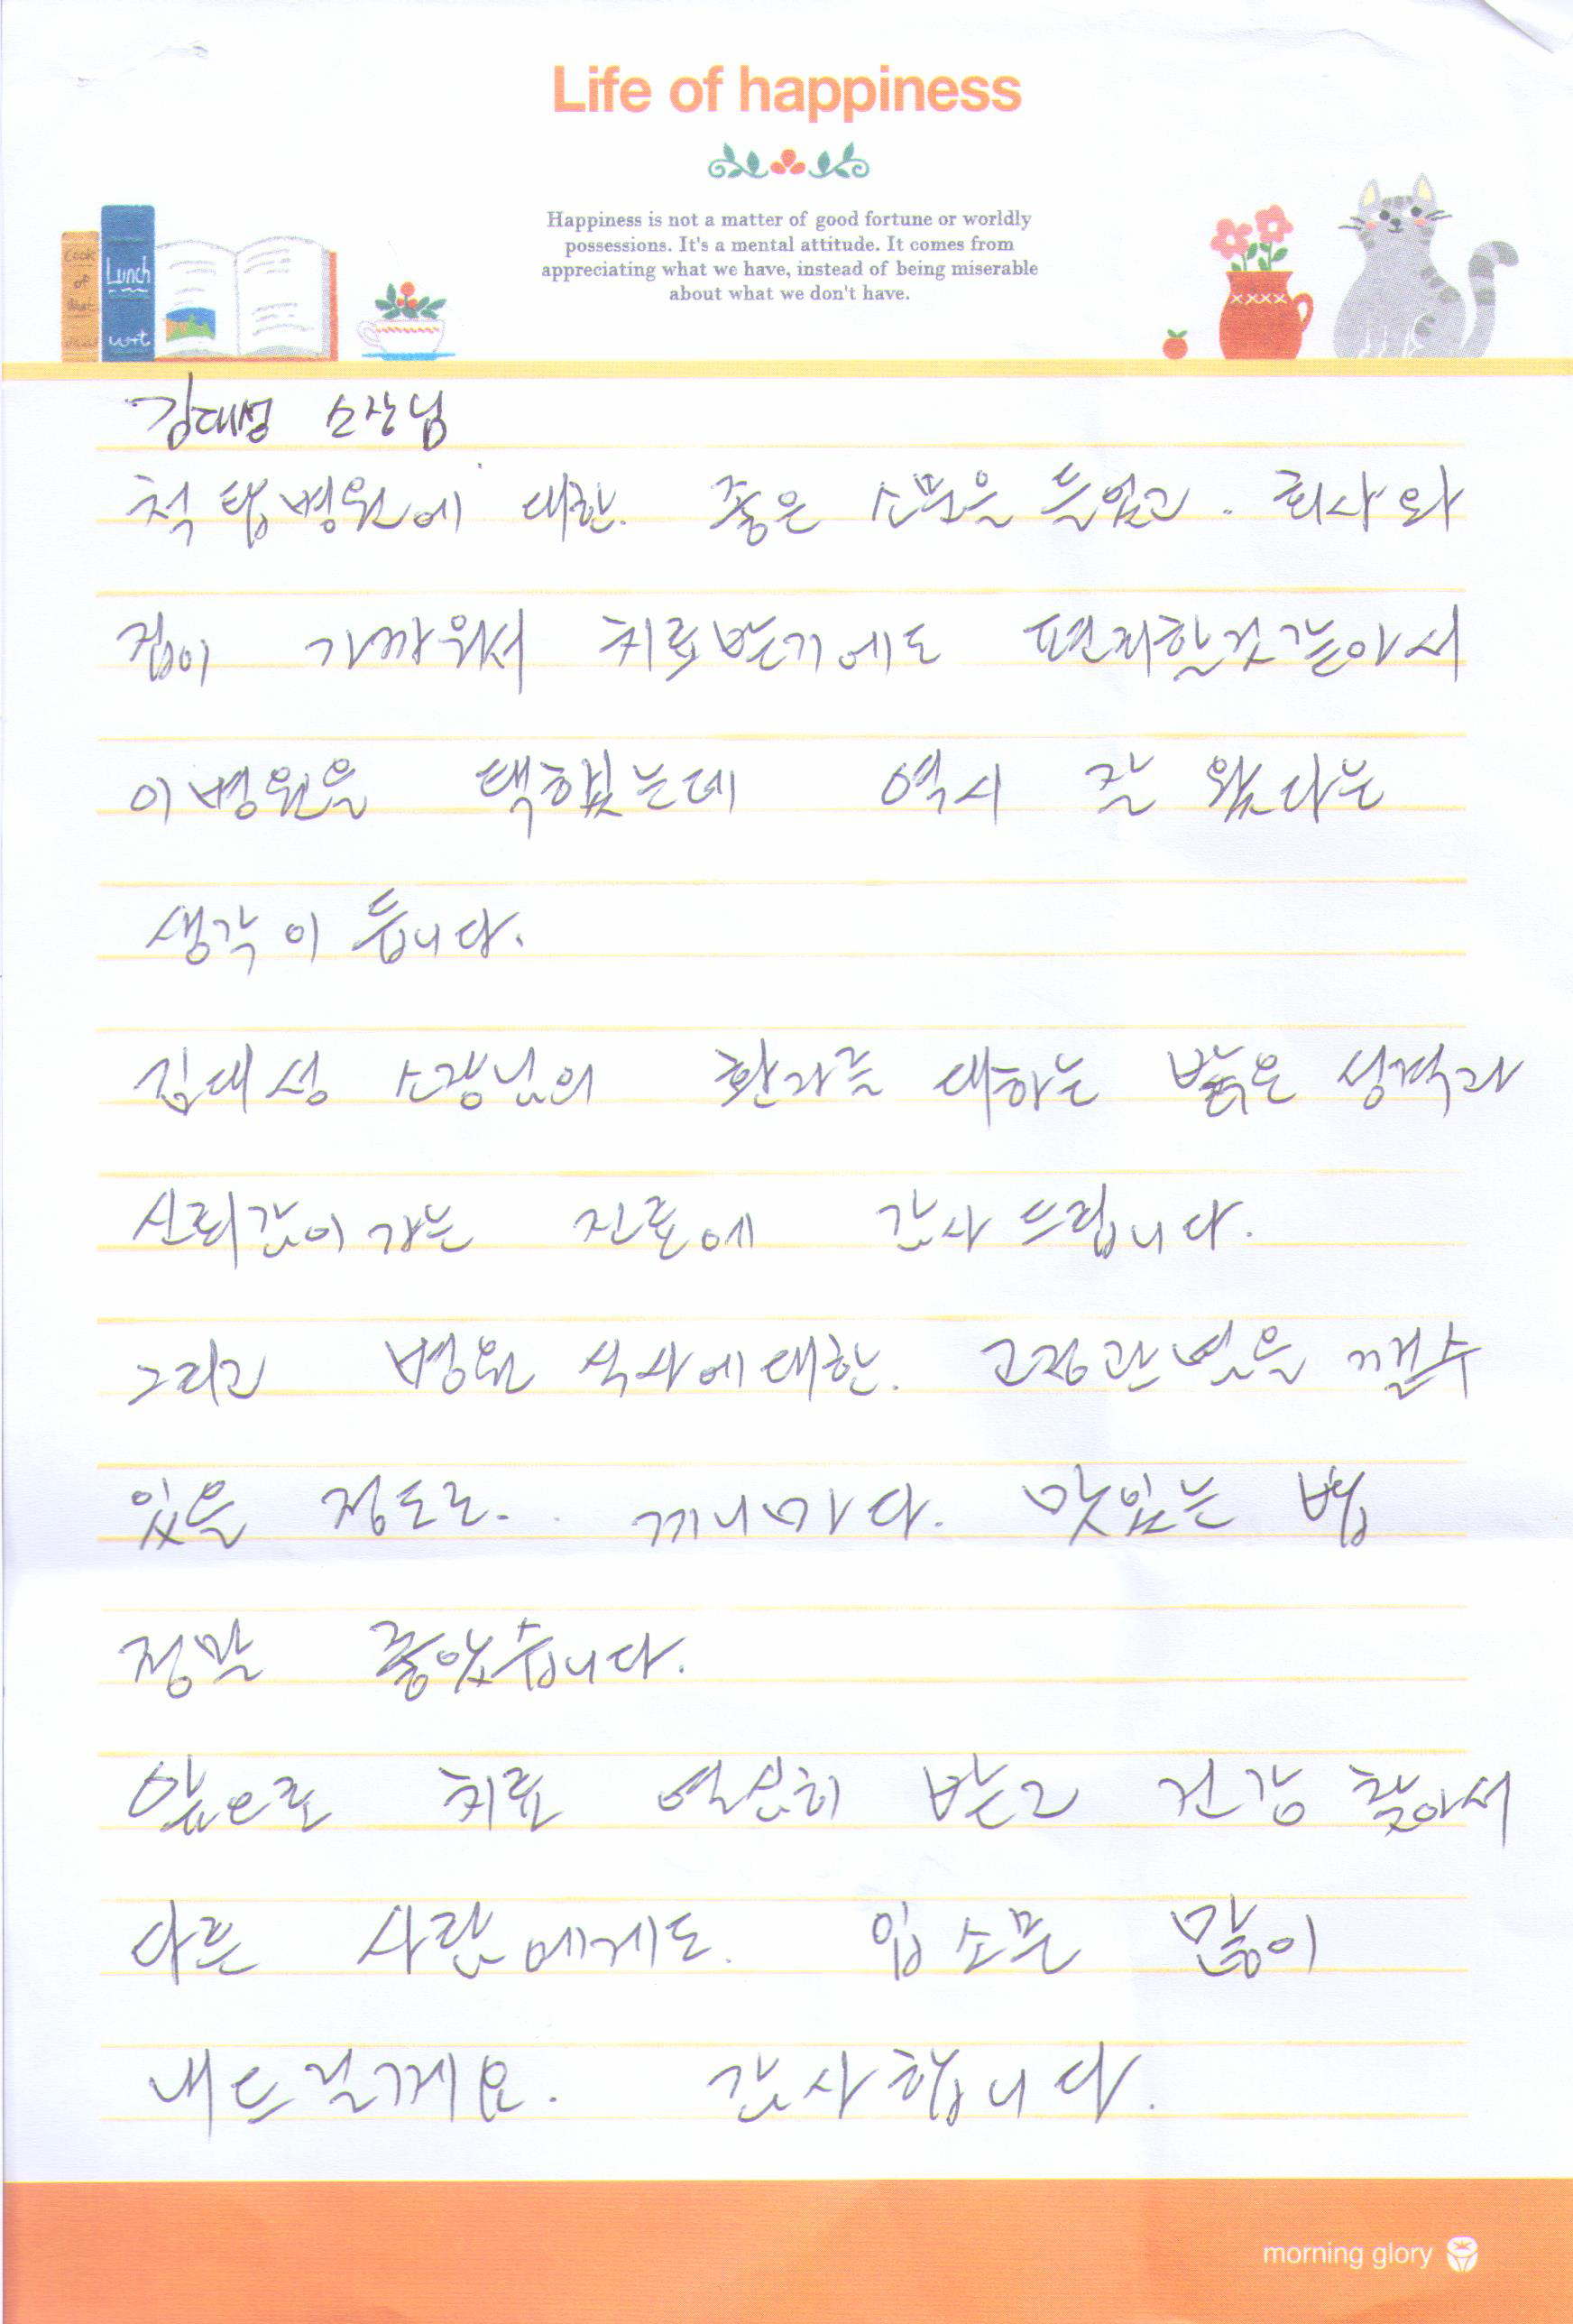 Life of happiness
Happiness is not a matter of good fortune or worldly
possessions. It's a mental attitude. It comes from
appreciating what we have, instead of being miserable
about what we don't have.
Lunch
김대성 소장님
척탑병원에 대한. 좋은 소문을 듣었고. 회사와
집이 가까워서 치료받기에도 편리할것같아서
이병원을 택했는데 역시 잘 왔다는
생각이 듭니다.
김대성 소장님의 환자를 대하는 밝은 성격과
신뢰감이가는 진료에 감사드립니다.
그리고 병원 식사에대한. 고정관념을 깰수
있을 정도로.. 끼니마다. 맛있는 밥
정말 좋았습니다.
앞으로 치료 열심히 받고 건강 찾아서
다른 사람에게도. 입소문 많이
내드릴께요. 감사합니다.
morning glory